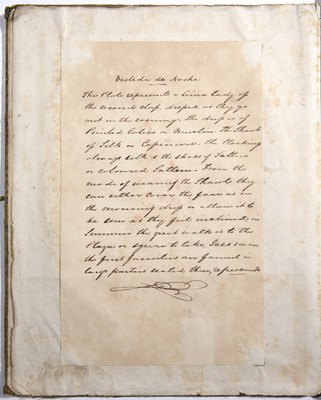 Vestida de Noche
This Plate represents a Lima Lady of
the second class, dressed as they go
out in the evening. The dress is of
Printed Calico or Muslin. The Shawl
of Silk or Capimere. The stocking
always silk & the shoes of Satten
or coloured Sattem. From the
mode of wearing the Shawl they
can either cover the face as in
the morning dress or allow it to
be seen as they feel inclined, in
Summer the great walk is to the
Plaza or square to take, Ices even
the first families are found in
large parties seated there,